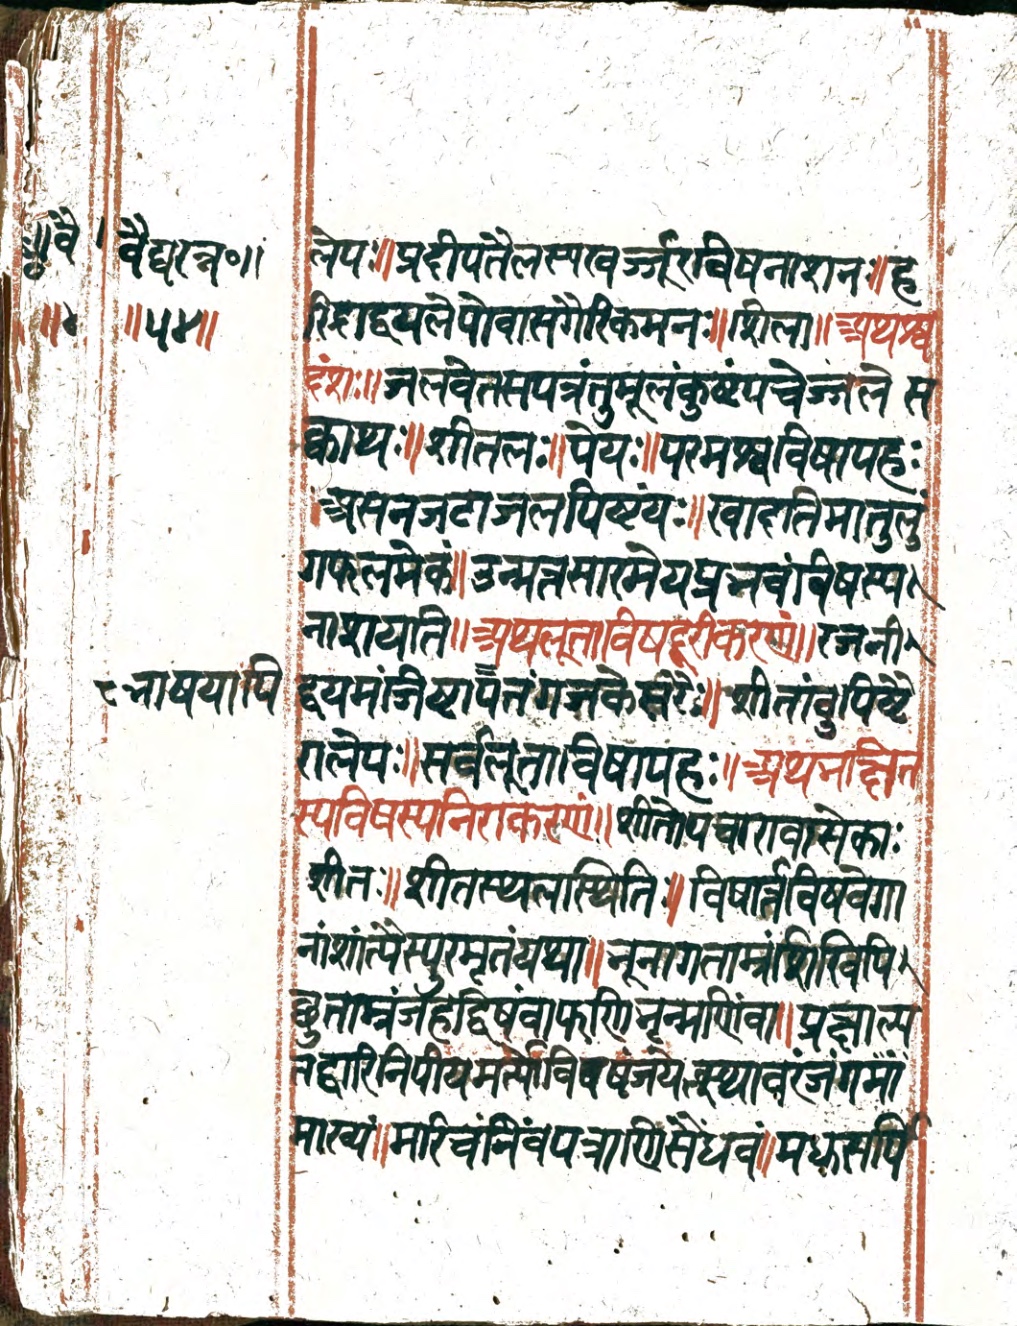 वैद्यरत्न०॥
॥५४॥
लेपः॥प्रदीपतैलस्यखर्ज्जूरविषनाशनः॥ह
रिद्राद्वयलेपोवासगैरिकमनः॥शिला॥अथश्व
दंशः॥जलवेतसपत्रंतुमूलंकुष्टंपचेज्जले स
क्वाथः॥शीतलः॥पेयः॥परमश्वविषापहः
असनजटाजलपिष्ट्यंयः॥खादतिमातुलुं
गफलमेकं॥उन्मत्तसारमेयप्रनवंविषस्य
नाशयाति॥अथलूताविषद्दूरीकरणं॥रजनी
द्वयमांजिष्टापत्तंगजकेसरैः॥शीतांबुपिष्टै
रालेपः॥सर्वलूताविषापहः॥अथनक्षित
स्यविषस्यनिराकरणं॥शीतोपचारावासेकाः
शीतः॥शीतस्थलस्थिति॥विषार्त्तविषवेगा
नांशांत्यैस्पुरमृतंयथा॥नूनागताम्रंशिखिपि
छुताम्रंजहद्विषंवाफणिनृन्मणिंवा॥प्रक्षाल्य
तद्वारिनिपीयमर्त्त्योविषंजयेत्स्थावरंजंगमां
माख्यं॥मरिचंनिंवपत्राणिसैंधवं॥मधुसर्पि
नाषयापि